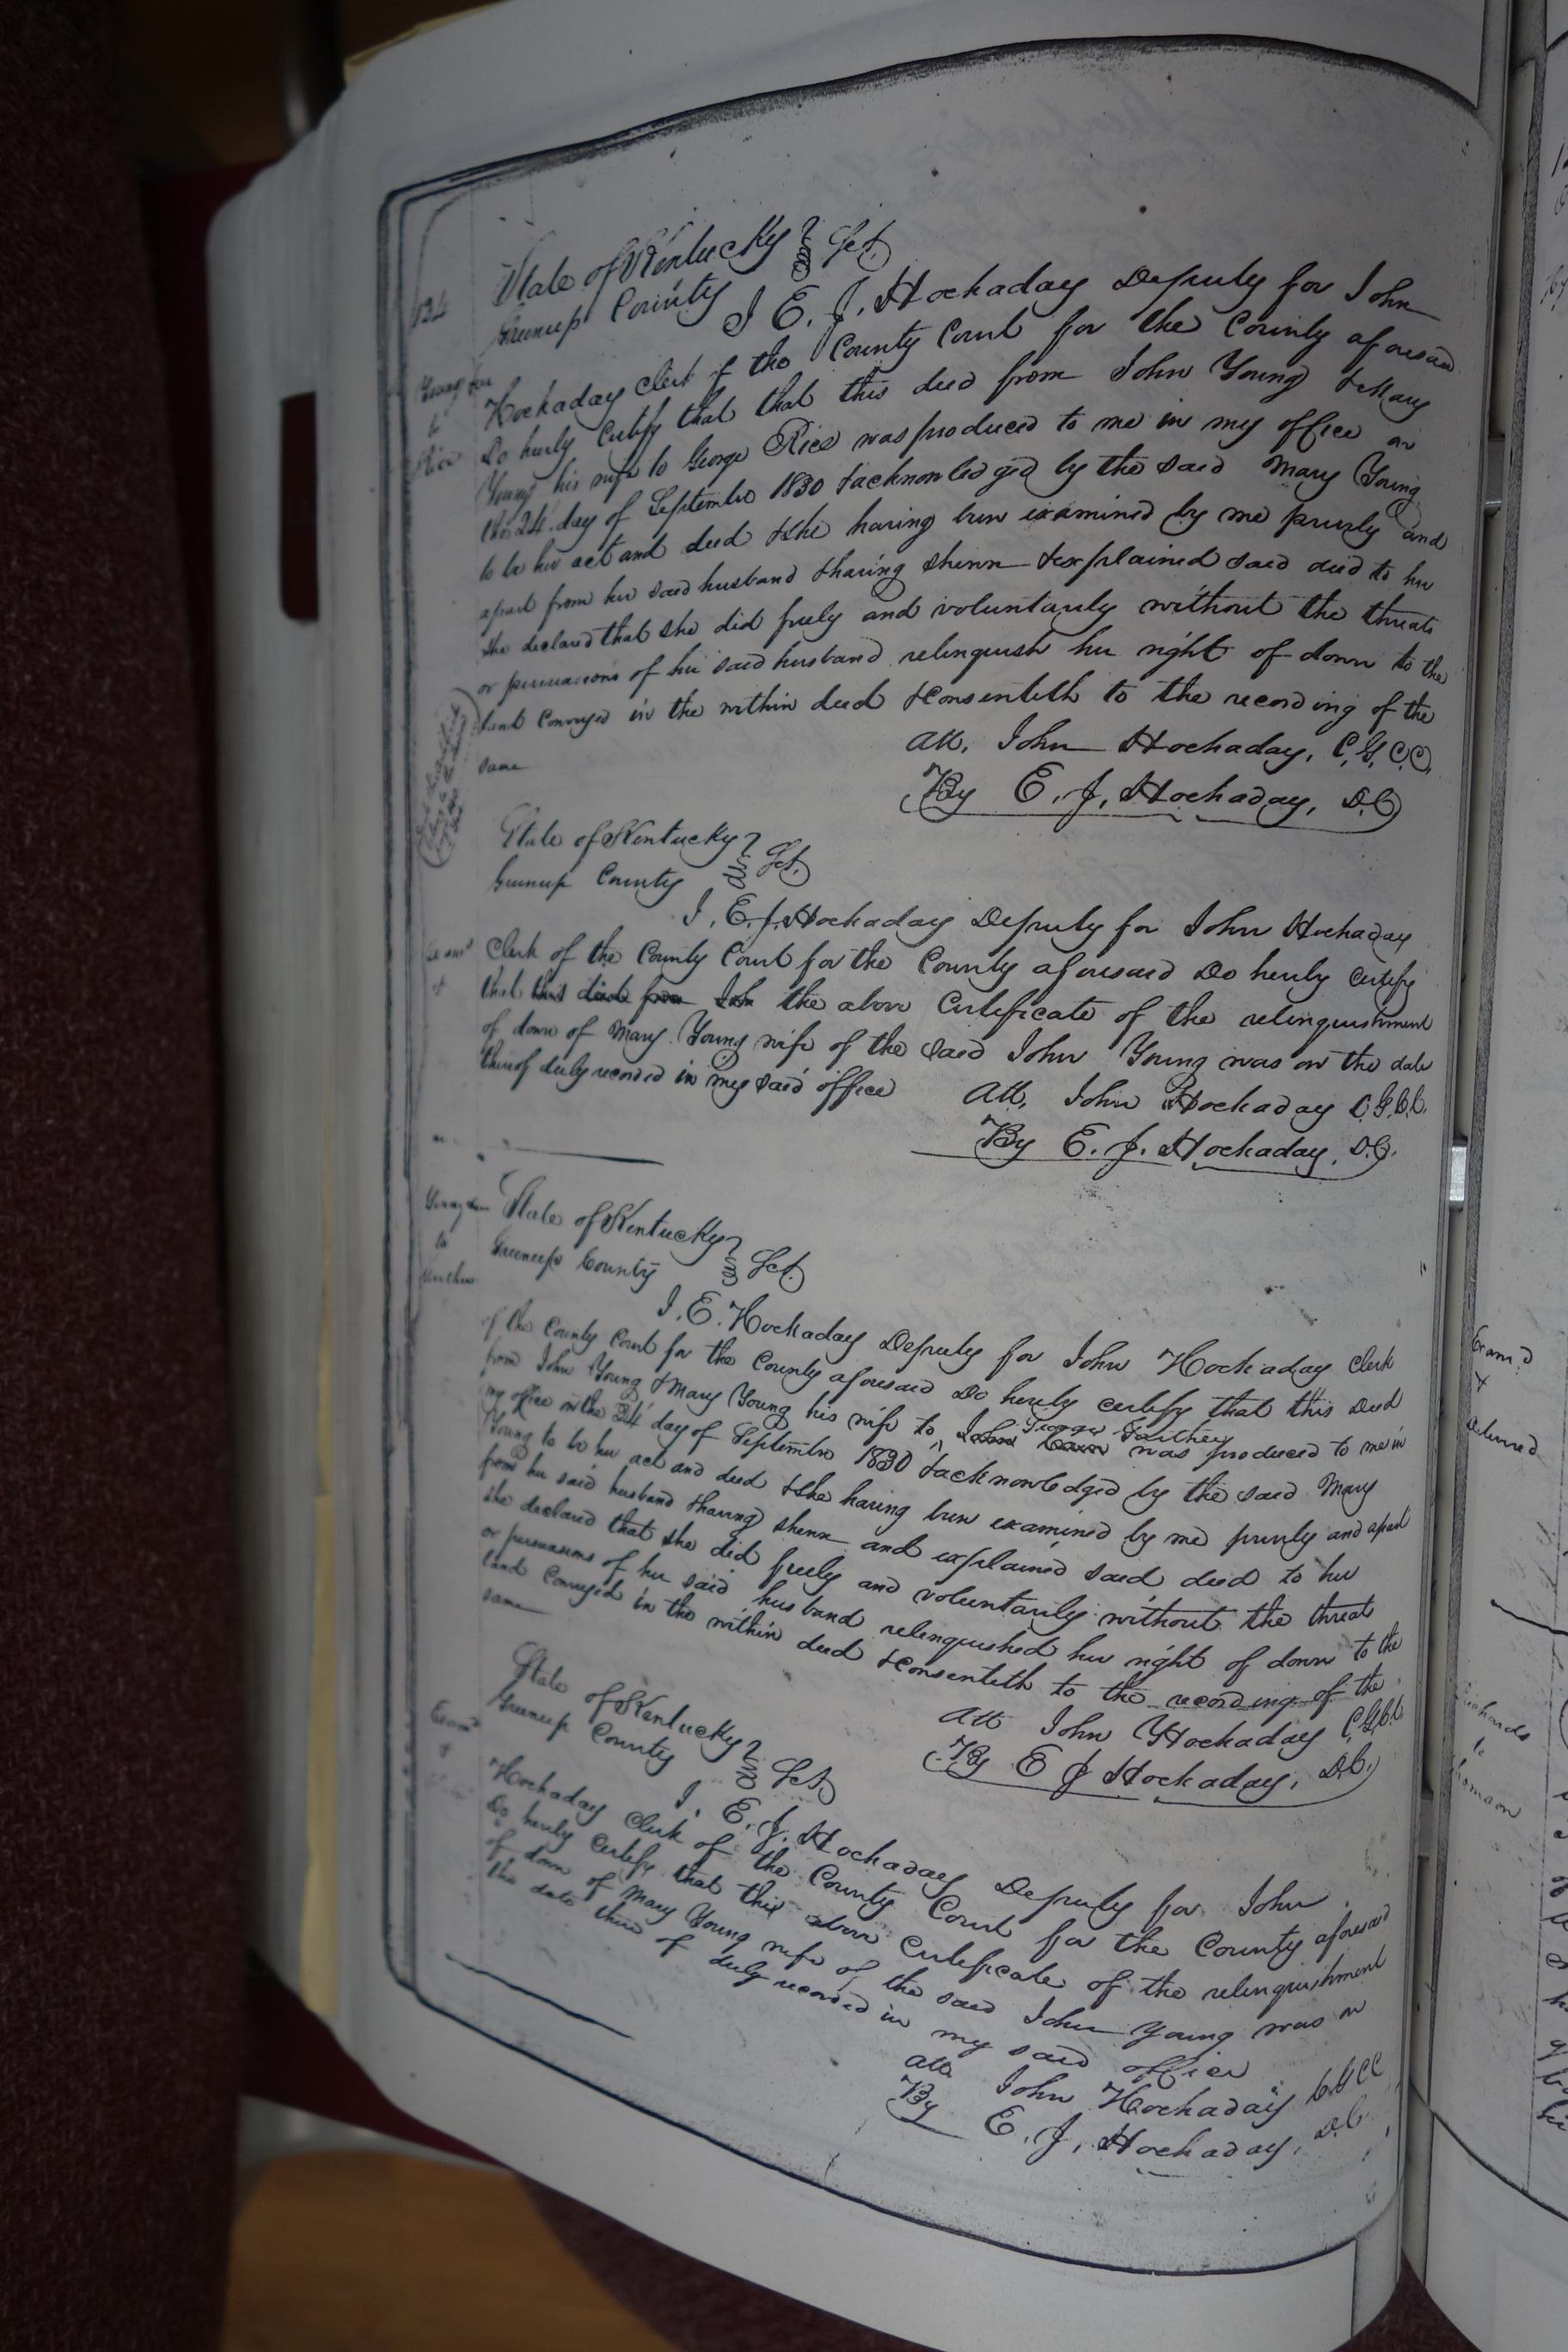 124
State of Kentucky } Sct.
Greenup County
I E. J. Hockaday Deputy for John
Hockaday Clerk of the County Court for the County aforesaid
Do hereby Certify that that this deed from John Young & Mary
Young his wife to George Rice was produced to me in my office on
the 24 day of September 1830 & acknowledged by the said Mary Young
to be her act and deed & she having been examined by me privily and
apart from her said husband & having shewn & explained said deed to her
she declared that she did freely and voluntarily without the threats
or persuasions of her said husband relinquish her right of dower to the
land conveyed in the within deed & consenteth to the recording of the
same
Att. John Hockaday, C.G.C.C.
By E. J. Hockaday, D.C
Young &
to
Rice
State of Kentucky } Sct.
Greenup County
I, E. J. Hockaday Deputy for John Hockaday
Clerk of the County Court for the County aforesaid Do hereby certify
that this deed from John the above Certificate of the relinquishment
of dower of Mary Young wife of the said John Young was on the date
thereof duly recorded in my said office
Att. John Hockaday C.G.C.C.
By E. J. Hockaday, D.C.
Exam<sup>d</sup>
Young
to
State of Kentucky } Sct.
Greenup County
I. E. Hockaday Deputy for John Hockaday Clerk
of the County Court for the County aforesaid Do hereby certify that this Deed
from John Young & Mary Young his wife to John George was produced to me in
my office on the 24 day of September 1830 & acknowledged by the said Mary
Young to be her act and deed & she having been examined by me privily and apart
from her said husband & having shewn and explained said deed to her
she declared that she did freely and voluntarily without the threats
or persuasions of her said husband relinquished her right of dower to the
land conveyed in the within deed & consenteth to the recording of the
same
Att John Hockaday C.G.C.C.
By E J Hockaday, D.C.
State of Kentucky } Sct.
Greenup County
I. E. J. Hockaday Deputy for John
Hockaday Clerk of the County Court for the County aforesaid
Do hereby Certify that this above Certificate of the relinquishment
of dower of Mary Young wife of the said John Young was on
the date there of duly recorded in my said office
Att John Hockaday C.G.C.C
By E. J. Hockaday, D.C.
Exam<sup>d</sup>
Exam.d
x
delivered
Richards
to